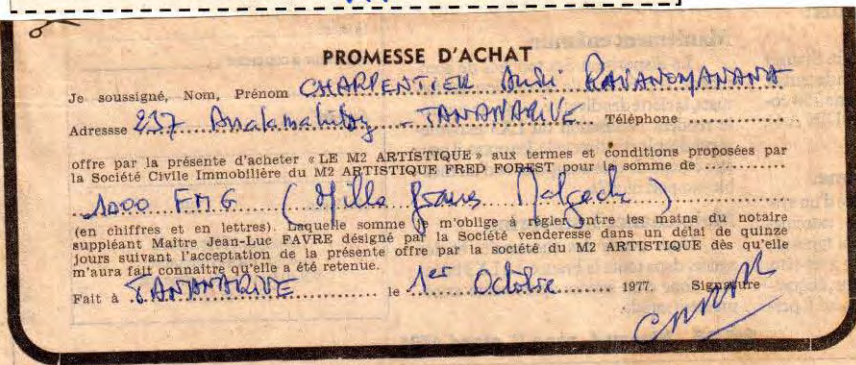 PROMESSE D'ACHAT
Je soussigné, Nom, Prénom CHARPENTIER RAVANOMANANA
Adressse 237 - TANANARIVE Téléphone
offre par la présente d'acheter « LE M2 ARTISTIQUE » aux termes et conditions proposées par
la Société Civile Immobilière du M2 ARTISTIQUE FRED FOREST pour la somme de
1000 FMG (Mille francs Malgache)
(en chiffres et en lettres). Laquelle somme je m'oblige à régler entre les mains du notaire
suppléant Maître Jean-Luc FAVRE désigné par la Société venderesse dans un délai de quinze
jours suivant l'acceptation de la présente offre par la société du M2 ARTISTIQUE dès qu'elle
m'aura fait connaître qu'elle a été retenue.
Fait à TANANARIVE le 1er Octobre 1977. Signature